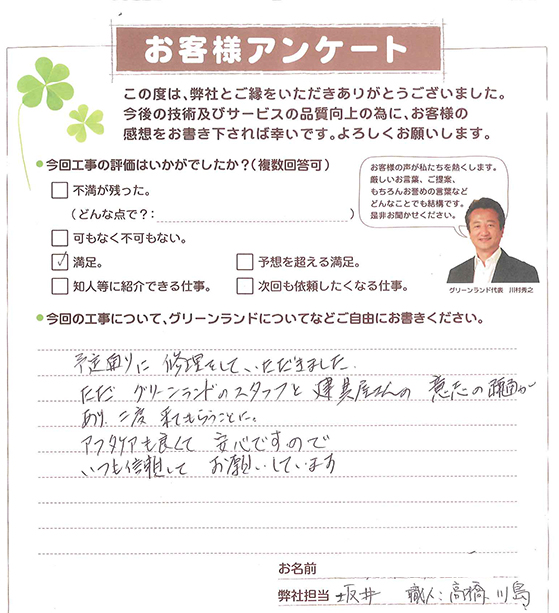 お客様アンケート
この度は、弊社とご縁をいただきありがとうございました。
今後の技術及びサービスの品質向上の為に、お客様の
感想をお書き下されば幸いです。よろしくお願いします。
今回工事の評価はいかがでしたか？（複数回答可）
不満が残った。
（どんな点で？： ）
可もなく不可もない。
満足。
予想を超える満足。
知人等に紹介できる仕事。
次回も依頼したくなる仕事。
お客様の声が私たちを熱くします。
厳しいお言葉、ご提案、
もちろんお誉めの言葉など
どんなことでも結構です。
是非お聞かせください。
グリーンランド代表 川村秀之
今回の工事について、グリーンランドについてなどご自由にお書きください。
予定通りに 修理をして いただきました.
ただ グリーンランドのスタッフと 建具屋さんの 意志の
あり 二度 来てもらうことに。
アフタケアも良くて 安心ですので
いつも信頼して お願いしています
お名前
弊社担当 坂井 職人：高橋 川島